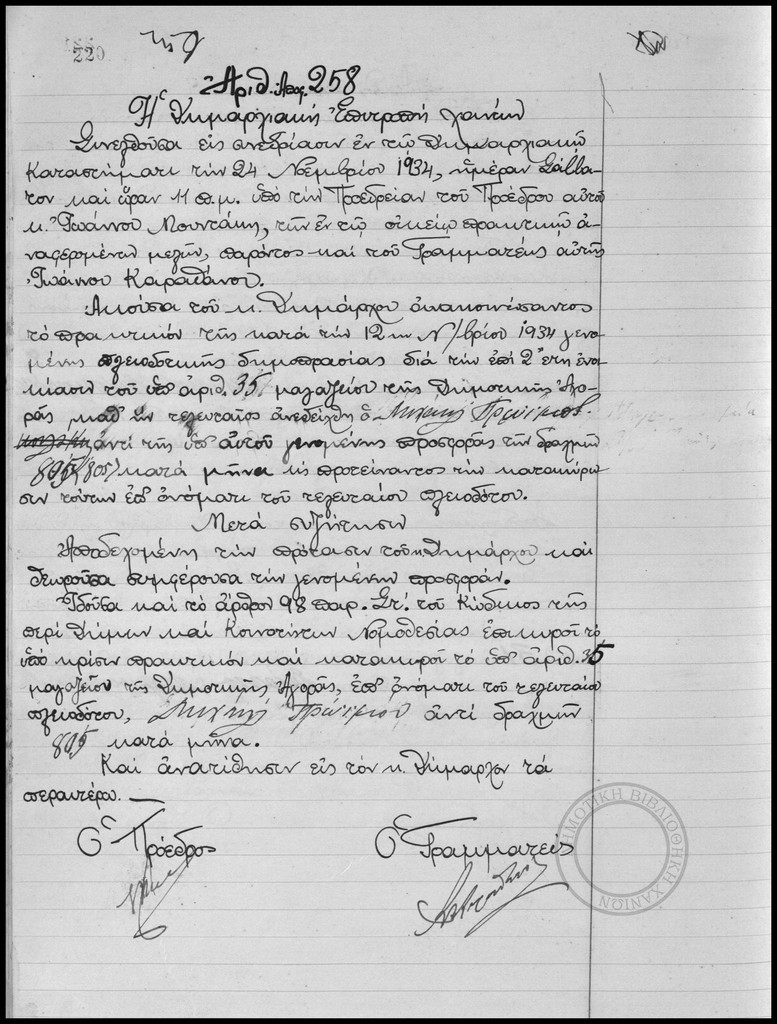 220
Ἀριθ. Ἀποφ. 258
Ἡ Δημαρχιακή Ἐπιτροπή Χανίων
Συνελθοῦσα εἰς συνεδρίασιν ἐν τῷ Δημαρχιακῷ
Καταστήματι τήν 24 Νοεμβρίου 1934, ἡμέραν Σάββα-
τον καί ὥραν 11 π.μ. ὑπό τήν Προεδρείαν τοῦ Προέδρου αὐτοῦ
κ. Ἰωάννου Μουντάκη, τῶν ἐν τῷ οἰκείῳ πρακτικῷ ἀ-
ναφερομένων μελῶν, παρόντος καί τοῦ Γραμματέως αὐτῆς
Ἰωάννου Καραθάνου.
Ἀκούσα τοῦ κ. Δημάρχου ἀνακοινώσαντος
τό πρακτικόν τῆς κατά τήν 12ην Ν/βρίου 1934 γενο-
μένης πλειοδοτικῆς δημοπρασίας διά τήν ἐπί 2 ἔτη ἐνοι-
κίασιν τοῦ ὑπ' ἀριθ. 35 μαγαζείου τῆς Δημοτικῆς Ἀγο-
ρᾶς, καθ' ἥν τελευταῖος ἀνεδείχθη ὁ Μιχαήλ
ἀντί τῆς ὑπ' αὐτοῦ γενομένης προσφορᾶς τῶν δραχμῶν
805 (805) κατά μῆνα κ προτείναντος τήν κατακύρω-
σιν τούτων ἐπ' ὀνόματι τοῦ τελευταίου πλειοδότου.
Μετά συζήτησιν
Ἀποδεχομένη τήν πρότασιν τοῦ κ. Δημάρχου καί
θεωροῦσα συμφέρουσα τήν γενομένην προσφοράν.
Ἰδοῦσα καί τό ἄρθρον 98 παρ. Στ'. τοῦ Κώδικος τῆς
περί Δήμων καί Κοινοτήτων Νομοθεσίας ἐπικυροῖ τό
ὑπό κρίσιν πρακτικόν καί κατακυροῖ τό ὑπ' ἀριθ. 35
μαγαζεῖον τῆς Δημοτικῆς Ἀγορᾶς, ἐπ' ὀνόματι τοῦ τελευταίου
πλειοδότου, Μιχαήλ ἀντί δραχμῶν
805 κατά μῆνα.
Καί ἀνατίθησιν εἰς τόν κ. Δήμαρχον τά
περαιτέρω. —
Ὁ Πρόεδρος Ὁ Γραμματεύς
ΔΗΜΟΤΙΚΗ ΒΙΒΛΙΟΘΗΚΗ ΧΑΝΙΩΝ